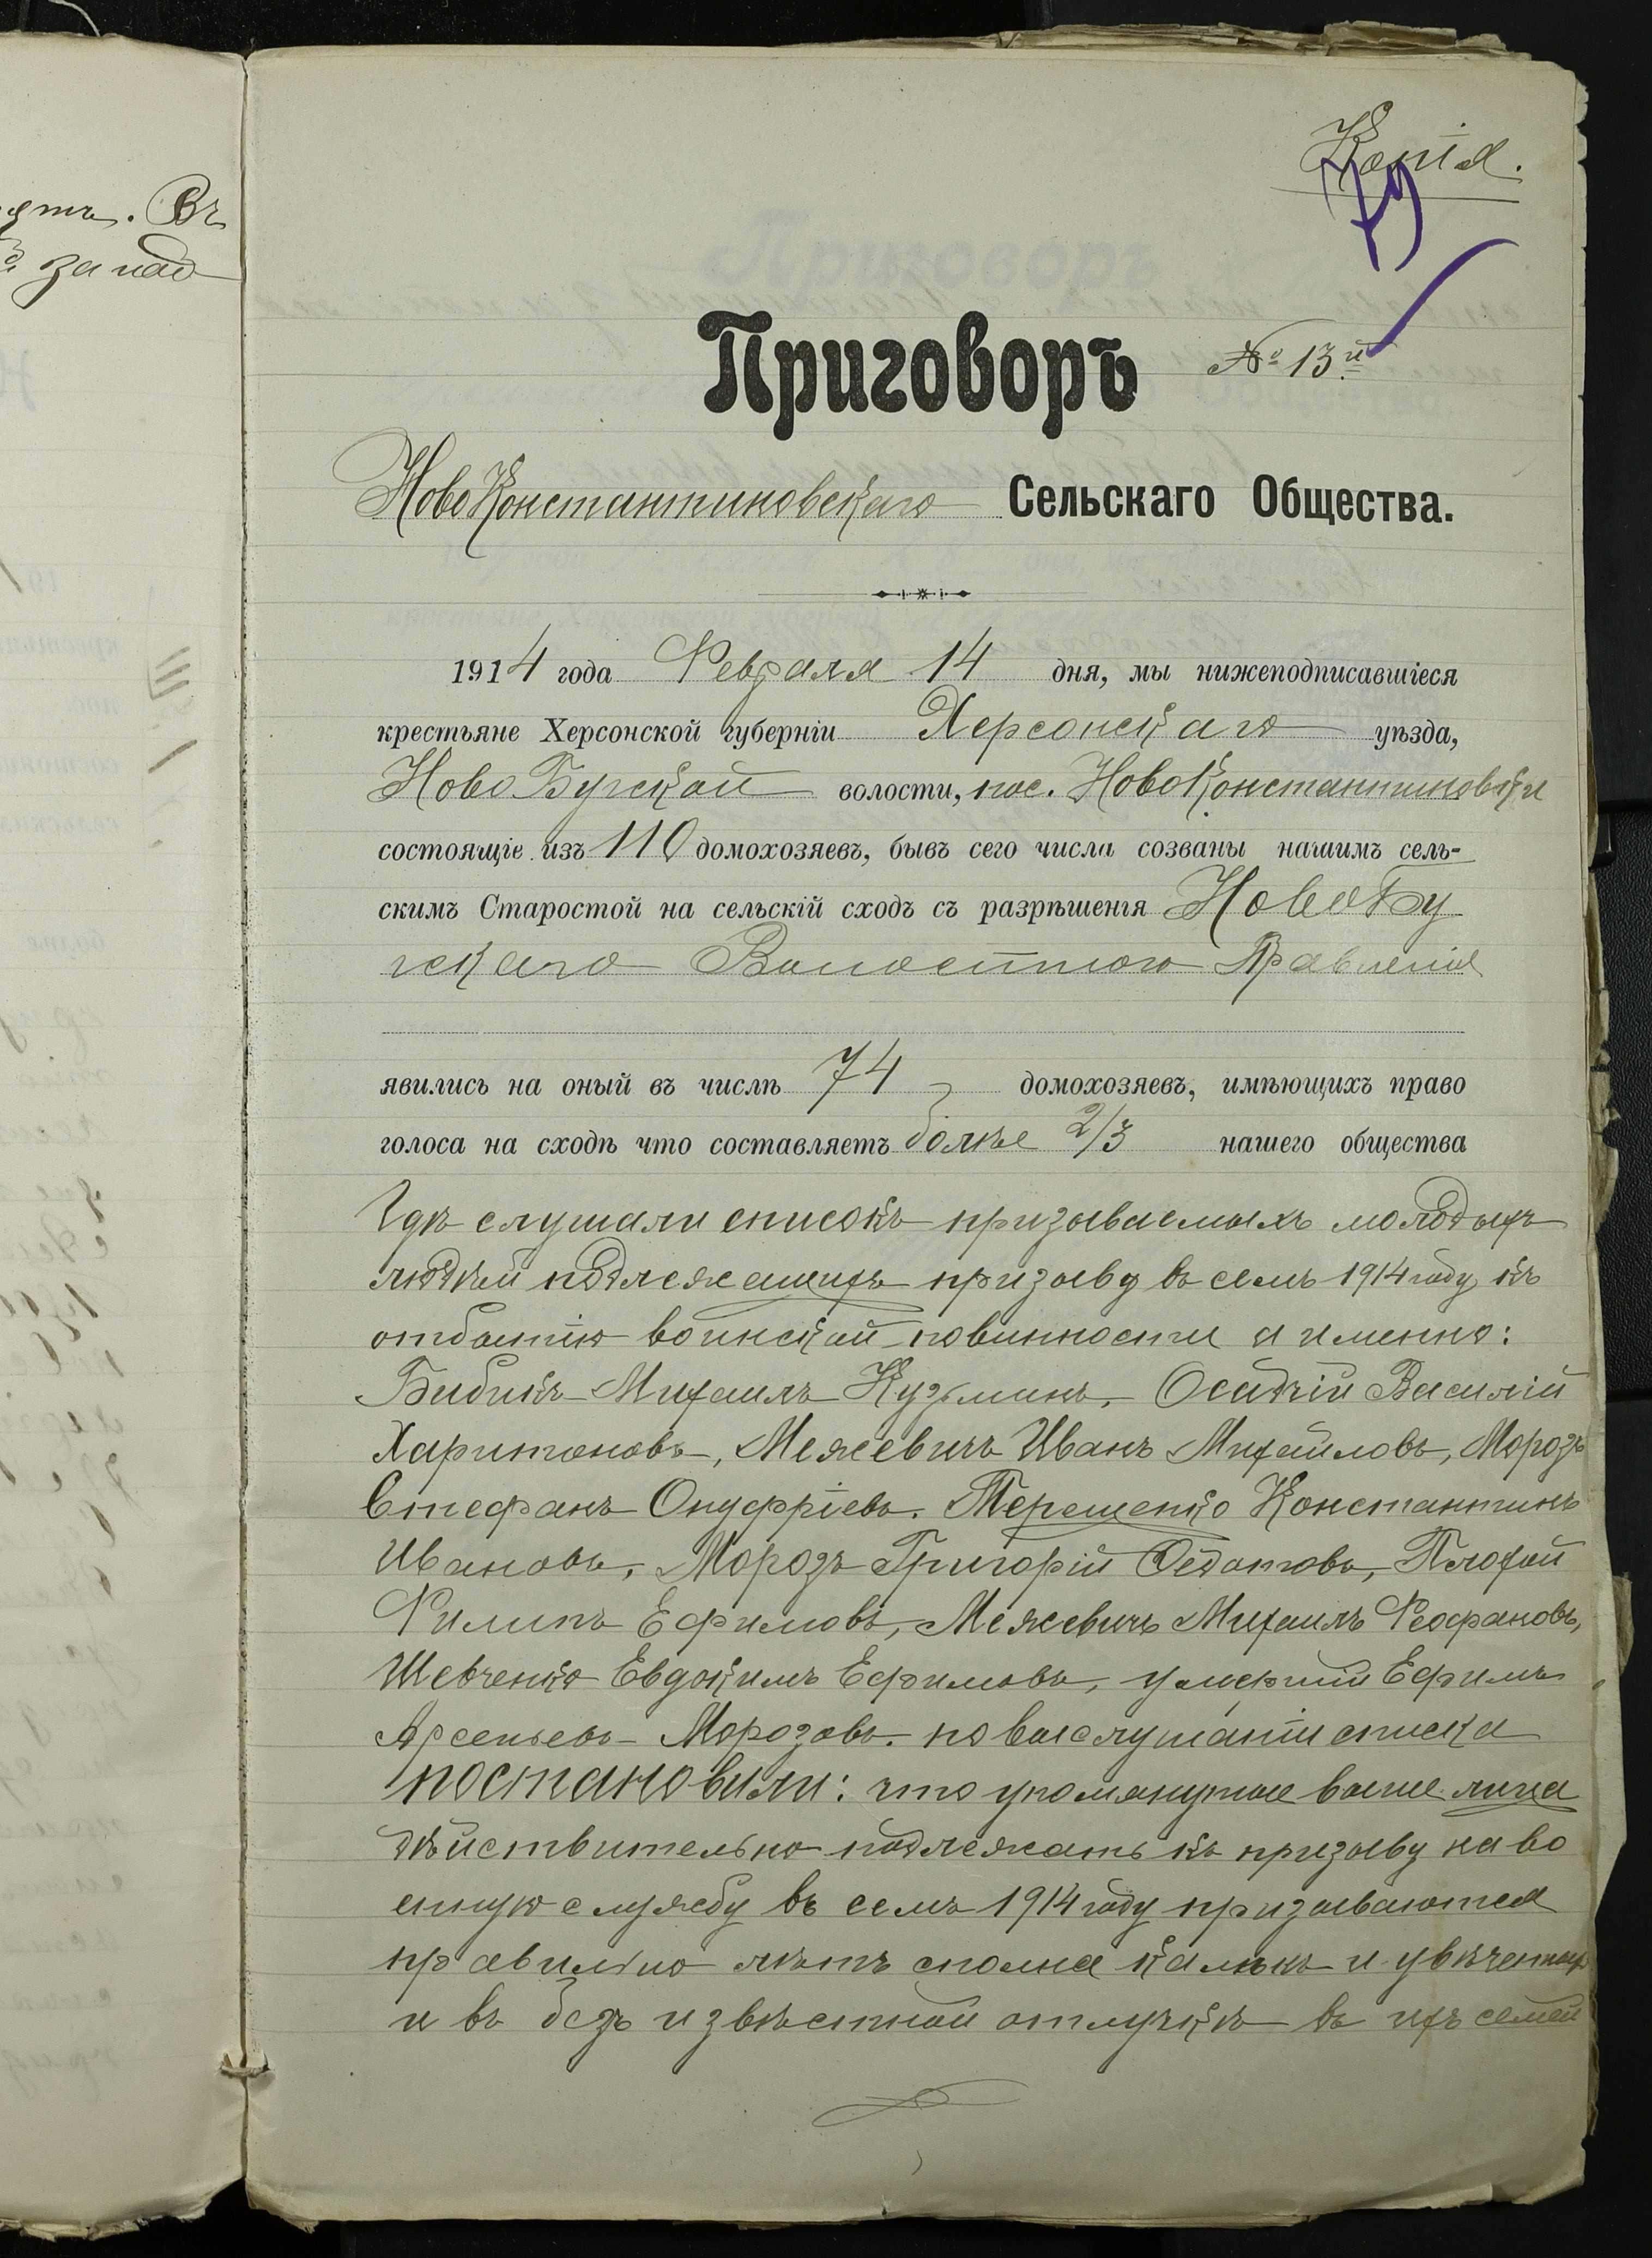 ятъ. Въ
запад
Копія.
79
Приговоръ № 13й
НовоКонстантиновскаго Сельскаго Общества.
1914 года Февраля 14 дня, мы нижеподписавшіеся
крестьяне Херсонской губерніи Херсонскаго уѣзда,
НовоБугской волости, пос. НовоКонстантиновки
состоящіе изъ 110 домохозяевъ, бывъ сего числа созваны нашимъ сель-
скимъ Старостой на сельскій сходъ съ разрѣшенія НовоБу
гскаго Волостного Правленія
явились на оный въ числѣ 74 домохозяевъ, имѣющихъ право
голоса на сходѣ что составляетъ болѣе 2/3 нашего общества
Гдѣ слушали списокъ призываемыхъ молодыхъ
людѣй подлежащихъ призыву въ семъ 1914 году къ
отбытію воинской повинности а именно:
Бибикъ Михаилъ Кузьминъ, Осадчій Василій
Харитоновъ, Межевичъ Иванъ Михайловъ, Морозъ
Стефанъ Онуфріевъ. Терещенко Константинъ
Ивановъ, Морозъ Григорій Федотовъ, Плохой
Филипъ Ефимовъ, Межевичъ Михаилъ Феофановъ,
Шевченко Евдокимъ Ефимовъ, умершій Ефимъ
Арсеньевъ Морозовъ. по выслушаніи списка
постановили: что упомянутые выше лица
дѣйствительно подлежатъ къ призыву на во
енную службу въ семъ 1914 году призываются
правильно лѣтъ сполна калѣкъ и увѣчныхъ
и въ безъ извѣстной отлучкѣ въ ихъ семей